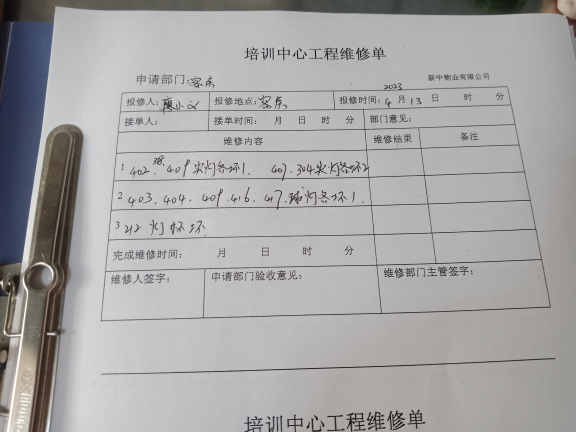 培训中心工程维修单
申请部门:客房 新中物业有限公司
2023
报修人: 报修地点:客房 报修时间:4月13日 时 分
接单人: 接单时间: 月 日 时 分 部门意见:
维修内容 维修结果 备注
1 402. 38. 409尖灯各坏1. 407. 304尖灯各坏2
2 403. 404. 409. 416. 417. 灯各坏1.
3 212 灯杯坏
完成维修时间: 月 日 时 分
维修人签字: 申请部门验收意见: 维修部门主管签字:
培训中心工程维修单